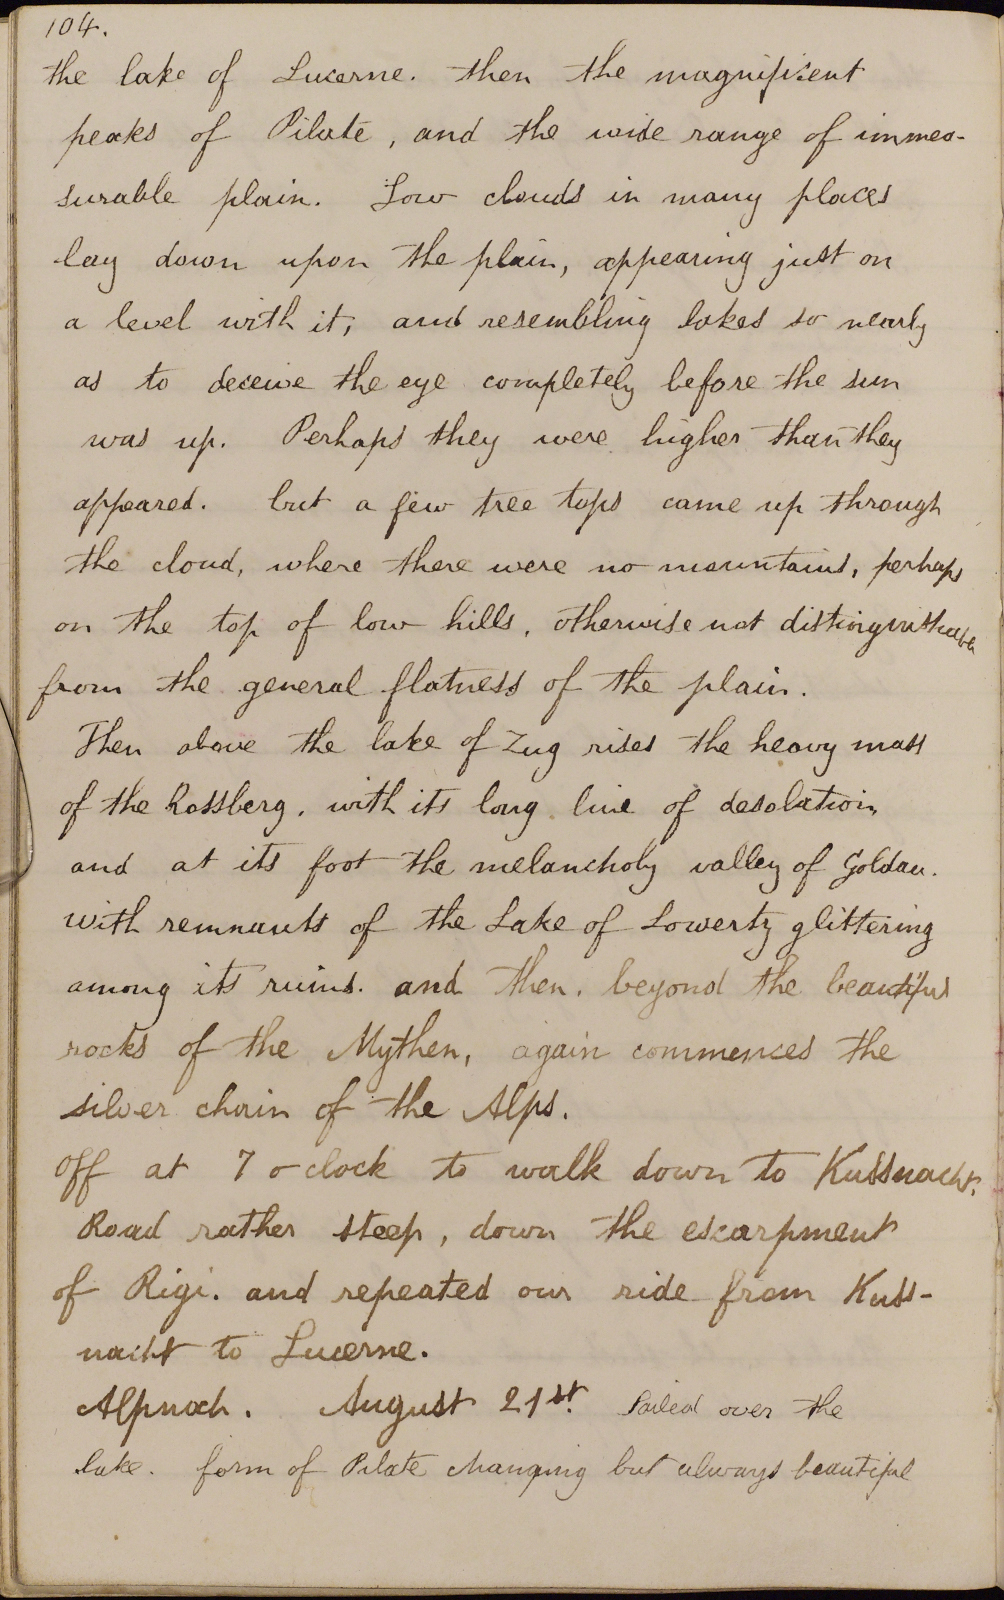 104.
the lake of Lucerne. then the magnificent
peaks of Pilate, and the wide range of immea-
surable plain. Low clouds in many places
lay down upon the plain, appearing just on
a level with it, and resembling lakes so nearly
as to deceive the eye completely before the sun
was up. Perhaps they were higher than they
appeared. but a few tree tops came up through
the cloud, where there were no mountains, perhaps
on the top of low hills, otherwise not distinguishable
from the general flatness of the plain.
Then above the lake of Zug rises the heavy mass
of the Rossberg. with its long line of desolation,
and at its foot the melancholy valley of Goldau.
with remnants of the Lake of Lowertz glittering
among its ruins. and then. beyond the beautiful
rocks of the Mythen, again commences the
silver chain of the Alps.
Off at 7 o clock to walk down to Kussnacht.
Road rather steep, down the escarpment
of Rigi. and repeated our ride from Kuss-
nacht to Lucerne.
Alpnach. August 21st. Sailed over the
lake. form of Pilate changing but always beautiful